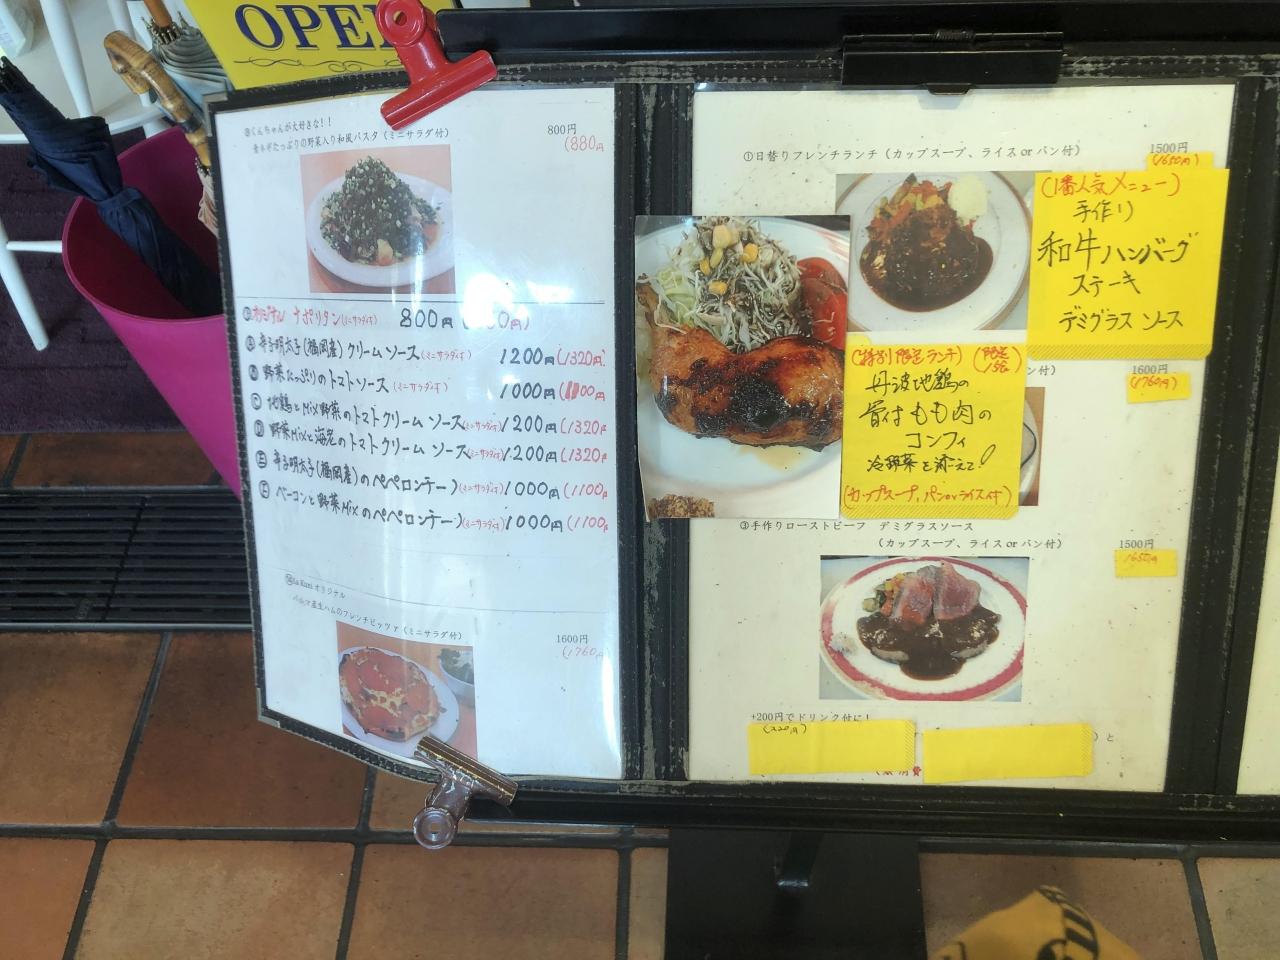 OPEN
くんちゃんが大好きな!!
青ネギたっぷりの野菜入り和風パスタ(ミニサラダ付)
800円
(880円
オリジナル ナポリタン(ミニサラダ付) 800円
Ⓐ 辛子明太子(福岡産)クリームソース(ミニサラダ付) 1200円(1320円)
Ⓑ 野菜たっぷりのトマトソース(ミニサラダ付) 1000円(1100円
Ⓒ 地鶏とMix野菜のトマトクリームソース(ミニサラダ付) 1200円(1320円
Ⓓ 野菜Mixと海老のトマトクリームソース(ミニサラダ付) 1200円(1320円
Ⓔ 辛子明太子(福岡産)のペペロンチーノ(ミニサラダ付) 1000円(1100円
ベーコンと野菜Mixのペペロンチーノ(ミニサラダ付) 1000円(1100円
オリジナル
パルマ産生ハムのフレンチピッツァ(ミニサラダ付)
1600円
(1760円
①日替りフレンチランチ(カップスープ、ライスorパン付)
1500円
(1650円)
(1番人気メニュー)
手作り
和牛ハンバーグ
ステーキ
デミグラスソース
(特別限定ランチ)
丹波地鶏の
骨付もも肉の
コンフィ
冷野菜を添えて!
(カップスープ、パンorライス付)
ン付)
1600円
(1760円)
③手作りローストビーフ デミグラスソース
(カップスープ、ライスorパン付)
1500円
1650円
+200円でドリンク付に!
(220円)
と